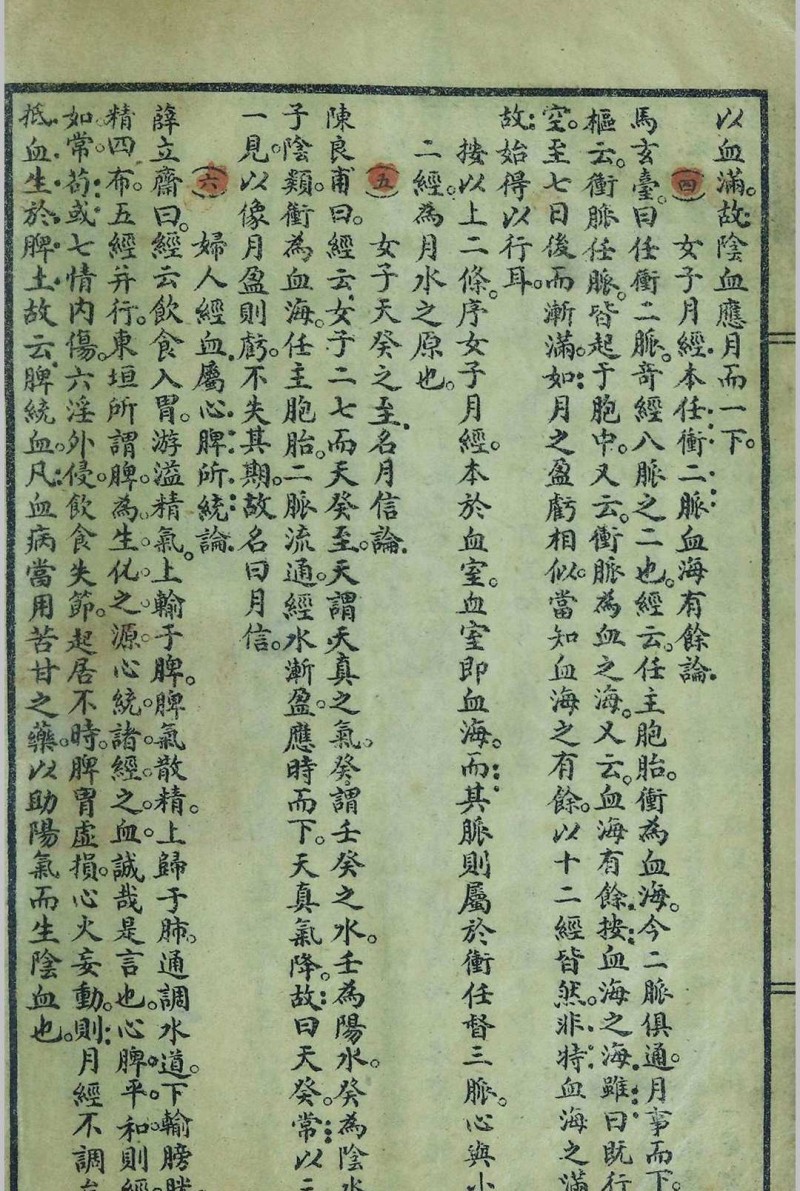 以血滿。故陰血應月而一下。
四 女子月經本任衝二脈血海有餘論
馬玄臺曰任衝二脈。奇經八脈之二也。經云。任主胞胎。衝為血海。今二脈俱通。月事而下。
樞云。衝脈任脈。皆起于胞中。又云。衝脈為血之海。又云。血海有餘。按血海之海。雖曰既行
空。至七日後而漸滿。如月之盈虧相似。當知血海之有餘。以十二經皆然。非特血海之滿
故。始得以行耳。
按以上二條。序女子月經。本於血室。血室即血海。而其脈則屬於衝任督三脈。心與小
二經。為月水之原也。
五 女子天癸之至。名月信論
陳良甫曰。經云。女子二七而天癸至。天謂天真之氣。癸謂壬癸之水。壬為陽水。癸為陰水
子陰類。衝為血海。任主胞胎。二脈流通。經水漸盈。應時而下。天真氣降。故曰天癸。常以三
一見。以像月盈則虧。不失其期。故名曰月信。
六 婦人經血屬心脾所統論
薛立齋曰。經云飲食入胃。游溢精氣。上輸于脾。脾氣散精。上歸于肺。通調水道。下輸膀胱
精四布。五經并行。東垣所謂脾為生化之源。心統諸經之血。誠哉是言也。心脾平和則經
如常。苟或七情內傷。六淫外侵。飲食失節。起居不時。脾胃虛損。心火妄動。則月經不調
抵血生於脾土。故云脾統血。凡血病當用苦甘之藥。以助陽氣而生陰血也。